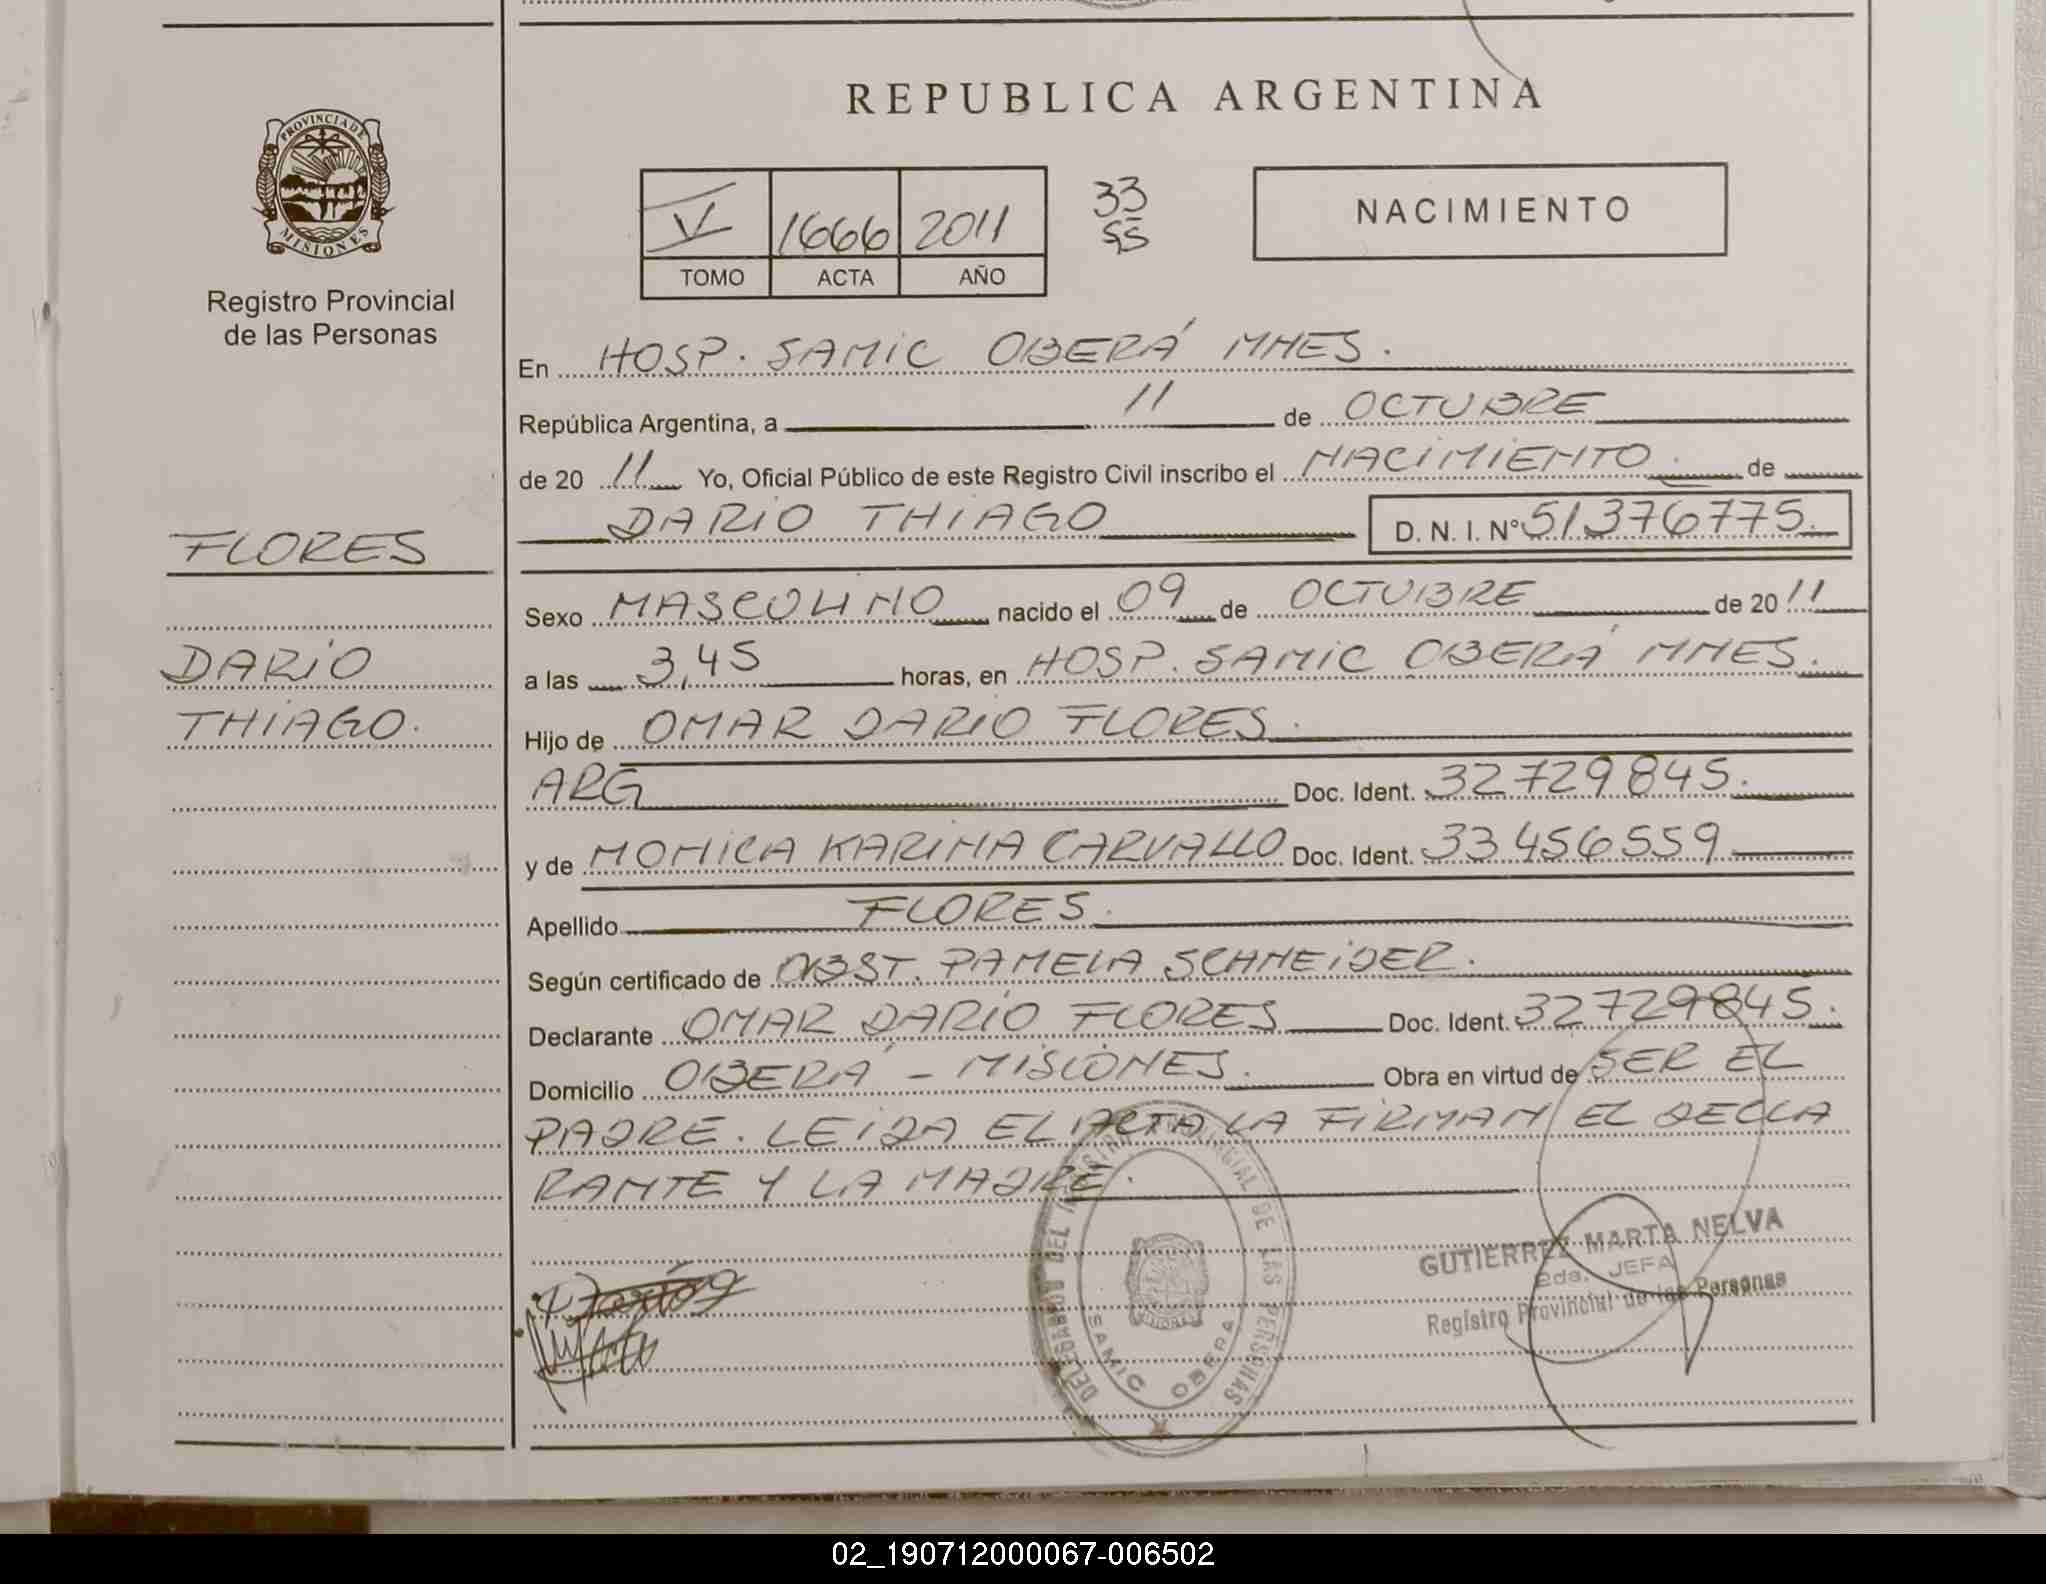 REPUBLICA ARGENTINA
PROVINCIA DE
MISIONES
Registro Provincial
de las Personas
V 1666 2011
TOMO ACTA AÑO
33
55
NACIMIENTO
En HOSP. SAMIC OBERÁ MNES.
República Argentina, a 11 de OCTUBRE
de 20 11 Yo, Oficial Público de este Registro Civil inscribo el NACIMIENTO. de
DARIO THIAGO D. N. I. N° 51376775.
FLORES
DARIO
THIAGO.
Sexo MASCULINO nacido el 09 de OCTUBRE de 20 11
a las 3,45 horas, en HOSP. SAMIC OBERÁ MNES.
Hijo de OMAR DARIO FLORES.
ARG Doc. Ident. 32729845.
y de MONICA KARINA CARVALLO Doc. Ident. 33456559
Apellido FLORES.
Según certificado de OBST. PAMELA SCHNEIDER.
Declarante OMAR DARIO FLORES Doc. Ident. 32729845.
Domicilio OBERÁ - MISIONES. Obra en virtud de SER EL
PADRE. LEIDA EL ACTA LA FIRMAN EL DECLA
RANTE Y LA MADRE.
DEL REGISTRO PROVINCIAL DE LAS PERSONAS
SAMIC OBERA
GUTIERREZ MARTA NELVA
2da. JEFA
Registro Provincial de las Personas
02_190712000067-006502